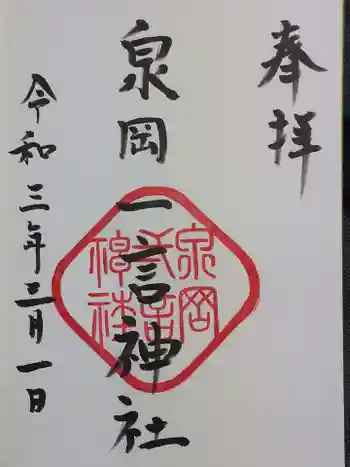 奉拝
泉岡一言神社
泉岡
一言
神社
令和三年三月一日